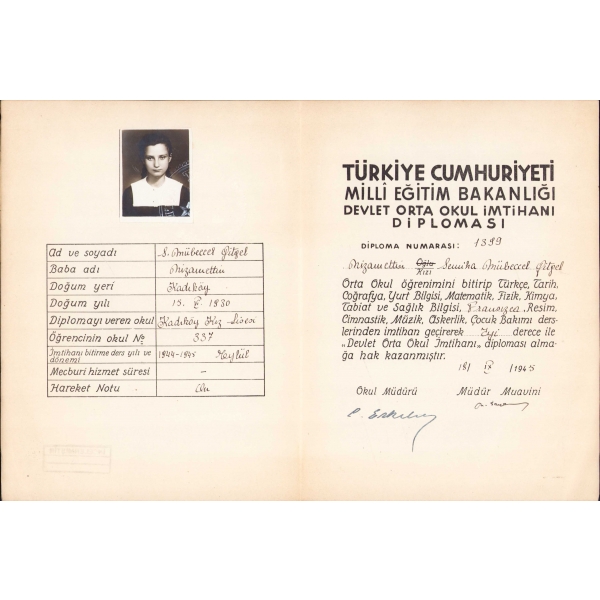 Ad ve soyadı S. Mübeccel
Baba adı Nizamettin
Doğum yeri Kadıköy
Doğum yılı 15. 1930
Diplomayı veren okul Kadıköy Kız Lisesi
Öğrencinin okul No 337
İmtihanı bitirme ders yılı ve dönemi 1944-1945 Eylül
Mecburi hizmet süresi —
Hareket Notu
TÜRKİYE CUMHURİYETİ
MİLLÎ EĞİTİM BAKANLIĞI
DEVLET ORTA OKUL İMTİHANI
DİPLOMASI
DİPLOMA NUMARASI: 1399
Nizamettin Oğlu Kızı Semiha Mübeccel
Orta Okul öğrenimini bitirip Türkçe, Tarih,
Coğrafya, Yurt Bilgisi, Matematik, Fizik, Kimya,
Tabiat ve Sağlık Bilgisi, Fransızca, Resim,
Cimnastik, Müzik, Askerlik, Çocuk Bakımı ders-
lerinden imtihan geçirerek İyi derece ile
„Devlet Orta Okul İmtihanı„ diploması alma-
ğa hak kazanmıştır.
18/ IX /1945
Okul Müdürü Müdür Muavini